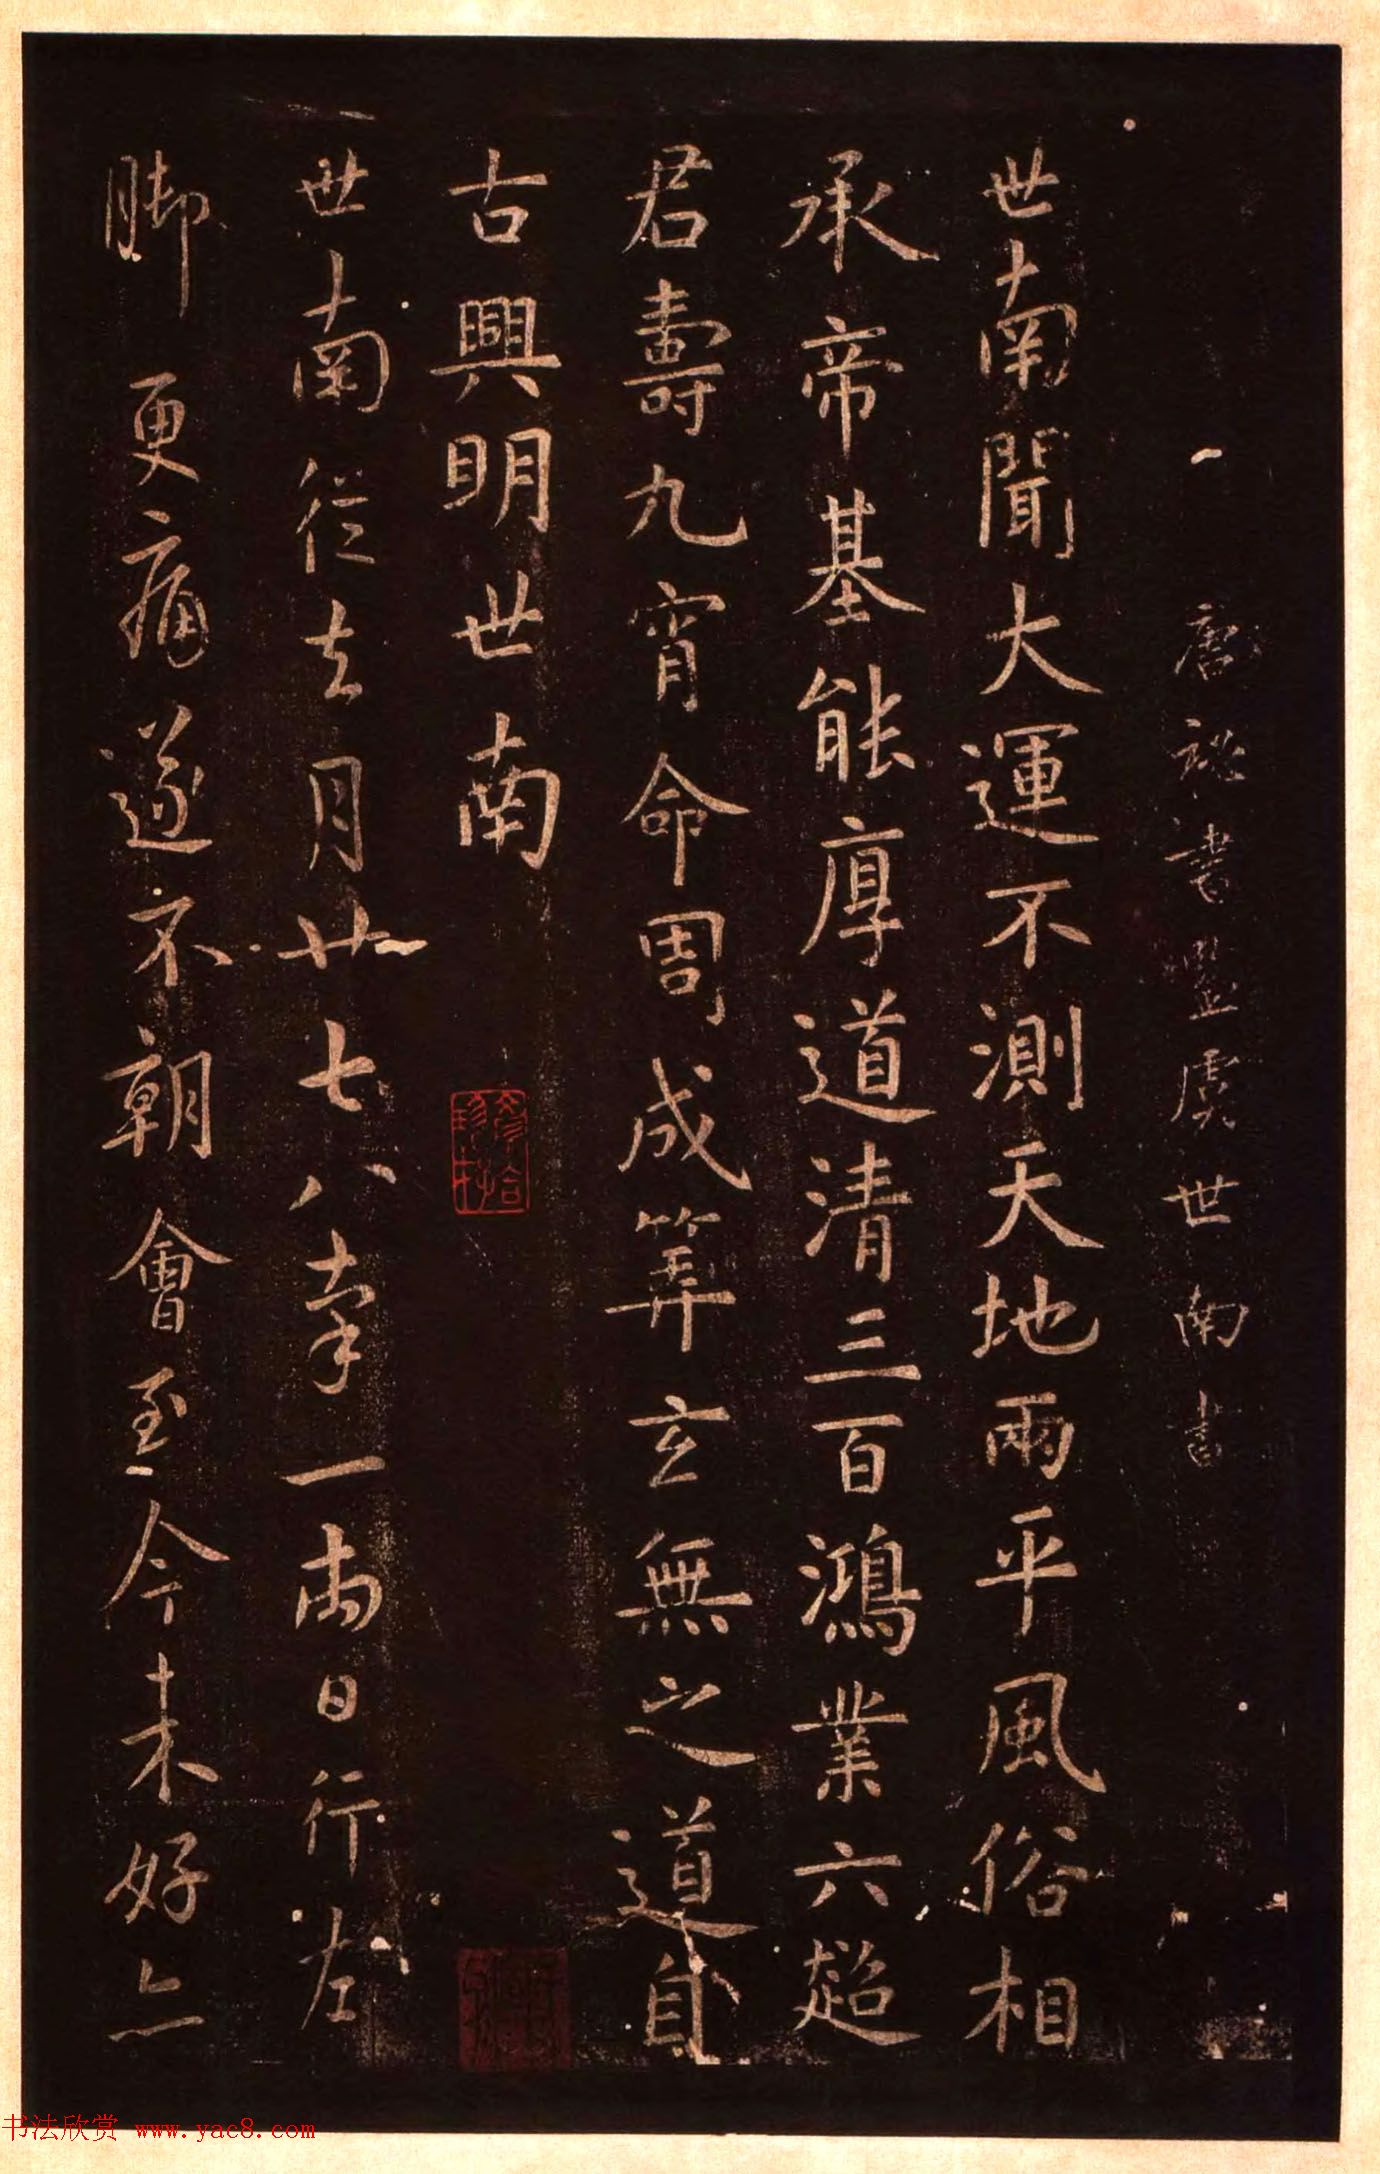 唐秘書監虞世南書
世南聞大運不測天地兩平風俗相
承帝基能厚道清三百鴻業六超
君壽九霄命周成筭玄無之道自
古興明世南
世南從去月廿七八率一兩日行左
脚更痛遂不朝會至今未好亦
书法欣赏 www.yac8.com